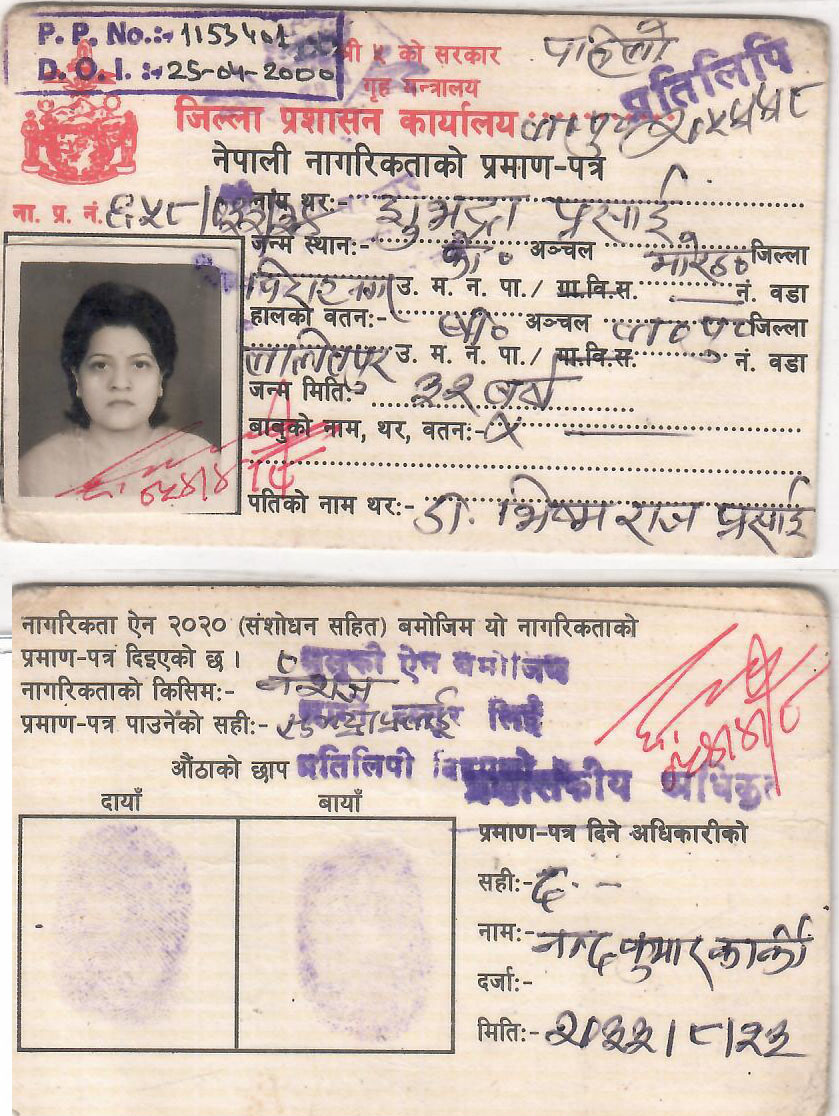 P. P. No.:- 1153401
D. O. I. :- 25-04-2000
श्री ५ को सरकार
गृह मन्त्रालय
पहिलो
प्रतिलिपि
जिल्ला प्रशासन कार्यालय
नेपाली नागरिकताको प्रमाण-पत्र
ना. प्र. नं.
नाम थर:- शुभद्रा प्रसाई
जन्म स्थान:- को० अञ्चल मोरङ० जिल्ला
उ. म. न. पा./ गा.वि.स. नं. वडा
हालको वतन:- बा० अञ्चल ल०पु० जिल्ला
ललितपुर उ. म. न. पा./ गा.वि.स. नं. वडा
जन्म मिति:- ३२ वर्ष
बाबुको नाम, थर, वतन:-
पतिको नाम थर:- डा. भिष्म राज प्रसाई
नागरिकता ऐन २०२० (संशोधन सहित) बमोजिम यो नागरिकताको
प्रमाण-पत्र दिइएको छ ।
नागरिकताको किसिम:- वंशज
प्रमाण-पत्र पाउनेको सही:-
औंठाको छाप
दायाँ बायाँ
प्रशासकीय अधिकृत
प्रमाण-पत्र दिने अधिकारीको
सही:- द. -
नाम:- नन्द कुमार कार्की
दर्जा:-
मिति:- २०३३।८।२३